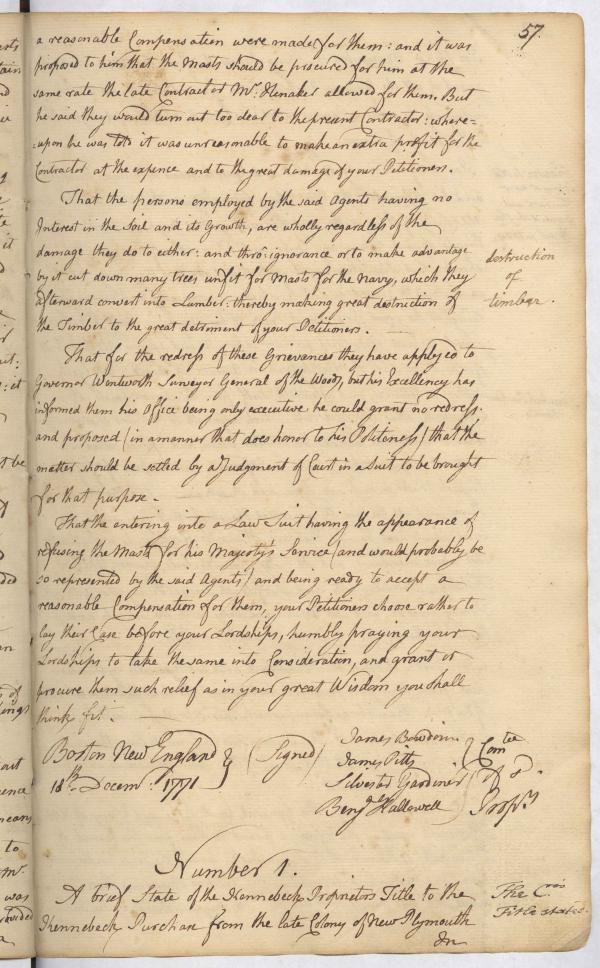 57.
a reasonable Compensation were made for them: and it was
proposed to him that the Masts should be procured for him at the
same rate the late Contractor Mr. Henaker allowed for them. But
he said they would turn out too dear to the present Contractor: where=
upon he was told it was unreasonable to make an extra profit for the
Contractor at the expence and to the great damage of your Petitioners.
That the persons employed by the said Agents having no
Interest in the Soil and its Growth, are wholly regardless of the
damage they do to either: and thro' ignorance or to make advantage
by it cut down many trees unfit for Masts for the Navy, which they
afterward convert into Lumber: thereby making great destruction of
the Timber to the great detriment of your Petitioners.
destruction
of
timber.
That for the redress of these Grievances they have applyed to
Governor Wentworth Surveyor General of the Woods, but his Excellency has
informed them his Office being only executive he could grant no redress.
and proposed (in a manner that does honor to his Politeness) that the
matter should be setled by a Judgment of Court in a Suit to be brought
for that purpose.
That the entering into a Law Suit having the appearance of
refusing the Masts for his Majesty's Service (and would probably be
so represented by the said Agents) and being ready to accept a
reasonable Compensation for them, your Petitioners choose rather to
lay their Case before your Lordships, humbly praying your
Lordships to take the same into Consideration, and grant or
procure them such relief as in your great Wisdom you shall
think fit.
Boston New England
18th Decemr. 1771
(Signed)
James Bowdoin
James Pitts
Silvester Gardiner
Benj Hallowell
Comtee
of sd.
Proprs
Number 1.
A brief State of the Kennebeck Proprietors Title to the
Kennebeck Purchase from the late Colony of New Plymouth
&c
The
Title stated.